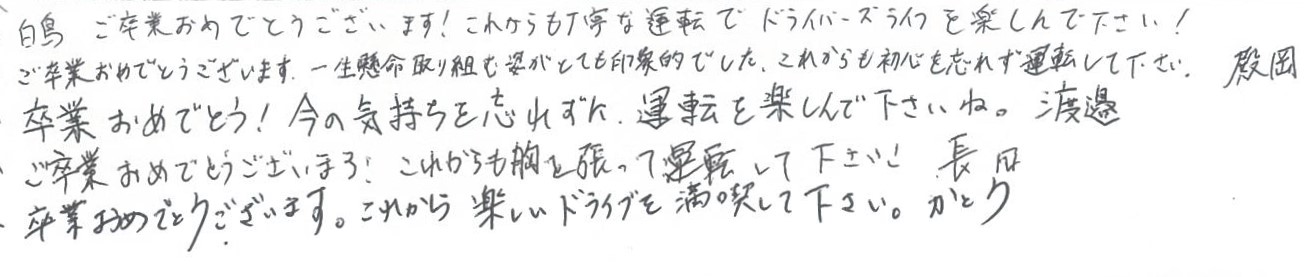 白鳥 ご卒業おめでとうございます！これからも丁寧な運転でドライバーズライフを楽しんで下さい！
ご卒業おめでとうございます。一生懸命取り組む姿がとても印象的でした。これからも初心を忘れず運転して下さい。 殿岡
卒業おめでとう！今の気持ちを忘れずに、運転を楽しんで下さいね。 渡邉
ご卒業おめでとうございます！これからも胸を張って運転して下さい！ 長田
卒業おめでとうございます。これから楽しいドライブを満喫して下さい。 かとう